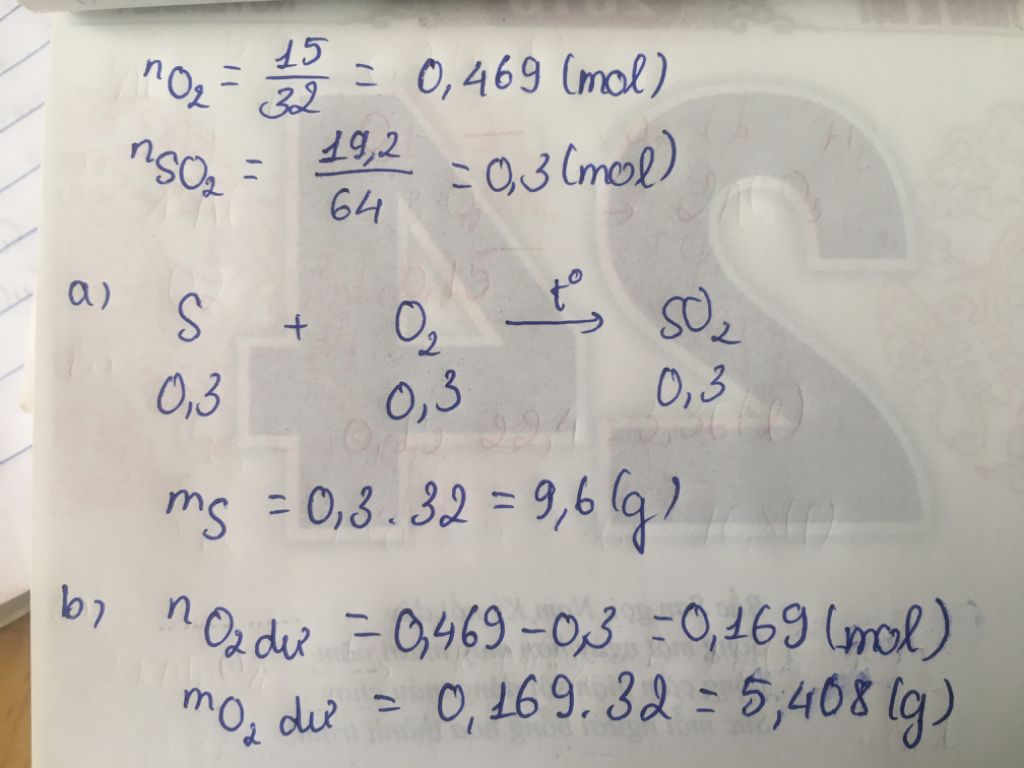 nO₂ = 15/32 = 0,469 (mol)
nSO₂ = 19,2/64 = 0,3 (mol)
a) S + O₂ t° → SO₂
0,3 0,3 0,3
mS = 0,3 . 32 = 9,6 (g)
b) nO₂ dư = 0,469 - 0,3 = 0,169 (mol)
mO₂ dư = 0,169 . 32 = 5,408 (g)
24